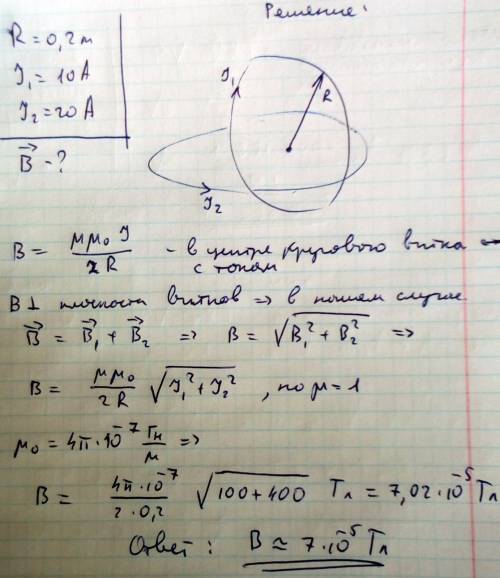 Решение:
R = 0,2 м
I₁ = 10 А
I₂ = 20 А
B⃗ - ?
I₁
R
I₂
B = μμ₀ I / 2R - в центре кругового витка
с током
B ⊥ плоскости витков => в нашем случае
B⃗ = B⃗₁ + B⃗₂ => B = √(B₁² + B₂²) =>
B = μμ₀ / 2R √(I₁² + I₂²) , но μ = 1
μ₀ = 4π·10⁻⁷ Гн/м =>
B = 4π·10⁻⁷ / 2·0,2 √(100 + 400) Тл = 7,02·10⁻⁵ Тл
Ответ: B ≈ 7·10⁻⁵ Тл